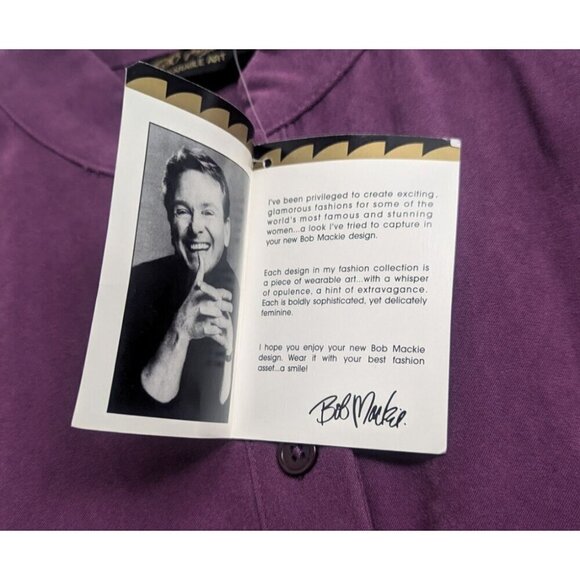 WEARABLE ART
I've been privileged to create exciting,
glamorous fashions for some of the
world's most famous and stunning
women...a look I've tried to capture in
your new Bob Mackie design.
Each design in my fashion collection is
a piece of wearable art...with a whisper
of opulence, a hint of extravagance.
Each is boldly sophisticated, yet delicately
feminine.
I hope you enjoy your new Bob Mackie
design. Wear it with your best fashion
asset...a smile!
Bob Mackie.